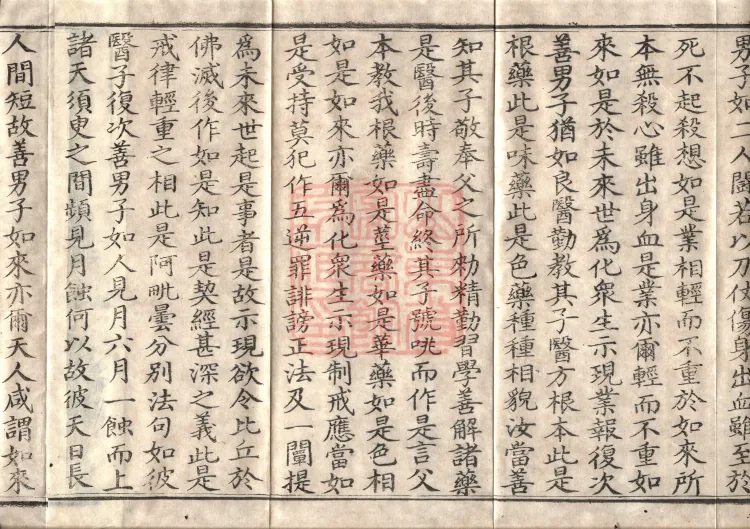 男子如二人鬪若以刀仗傷身出血雖至於
死不起殺想如是業相輕而不重於如來所
本無殺心雖出身血是業亦爾輕而不重如
來如是於未來世爲化衆生示現業報復次
善男子猶如良醫勤教其子醫方根本此是
根藥此是味藥此是色藥種種相貌汝當善
知其子敬奉父之所勑精勤習學善解諸藥
是醫後時壽盡命終其子號咷而作是言父
本教我根藥如是莖藥如是華藥如是色相
如是如來亦爾爲化衆生示現制戒應當如
是受持莫犯作五逆罪誹謗正法及一闡提
爲未來世起是事者是故示現欲令比丘於
佛滅後作如是知此是契經甚深之義此是
戒律輕重之相此是阿毗曇分別法句如彼
醫子復次善男子如人見月六月一蝕而上
諸天須臾之間頻見月蝕何以故彼天日長
人間短故善男子如來亦爾天人咸謂如來